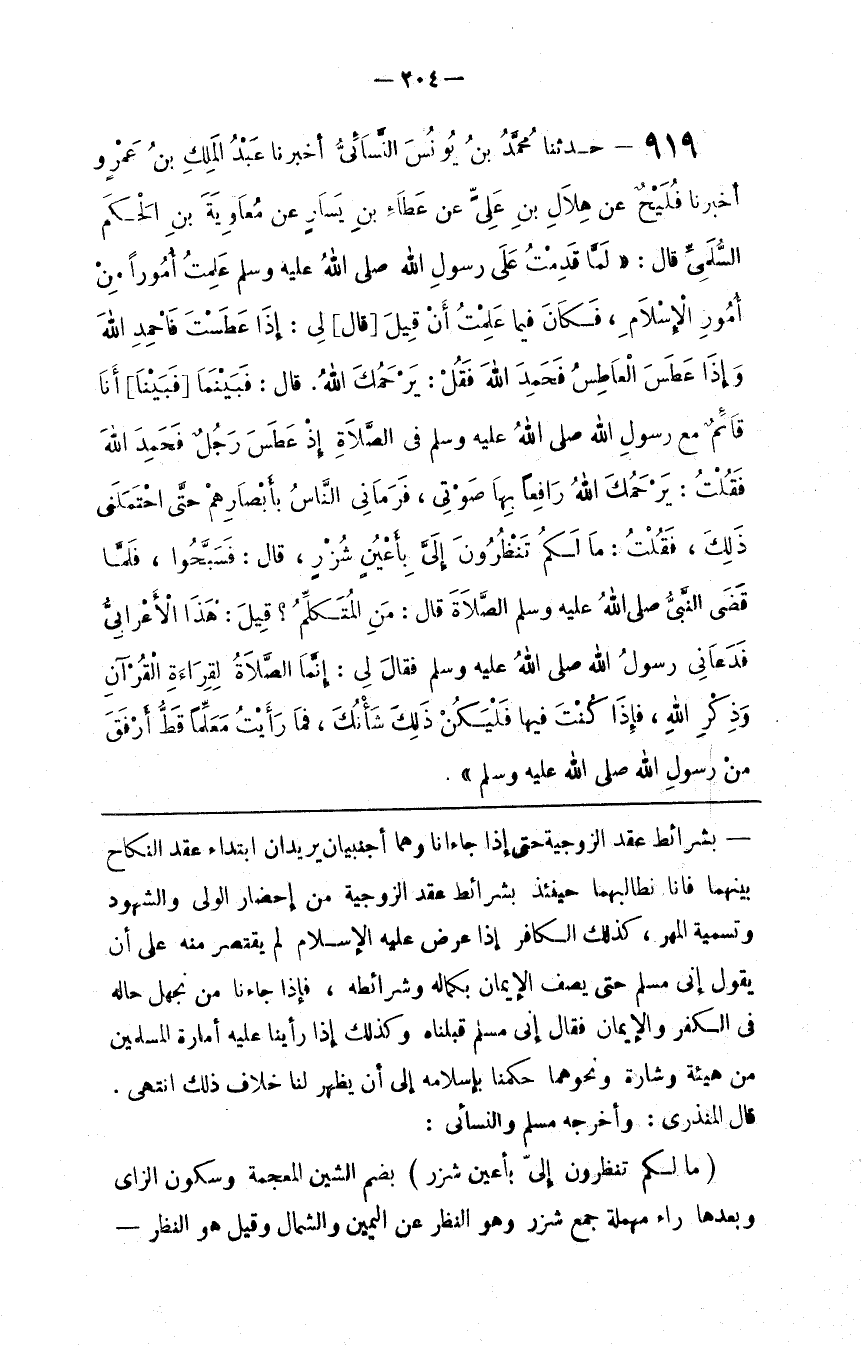 — ٢٠٤ —
٩١٩ — حـدثنا مُحَمَّدُ بنُ يُونُسَ النَّسَائِيُّ أخبرنا عَبْدُ المَلِكِ بنُ عَمْرٍو
أخبرنا فُلَيْحٌ عن هِلَالِ بنِ عَلِيٍّ عن عَطَاءِ بنِ يَسَارٍ عن مُعَاوِيَةَ بنِ الحَـكَمِ
السُّلَمِيِّ قال : « لَمَّا قَدِمْتُ عَلَى رسولِ الله صلى اللهُ عليه وسلم عَلِمتُ أُمُوراً مِنْ
أُمُورِ الْإِسْلَامِ ، فَـكَانَ فيما عَلِمْتُ أَنْ قِيلَ [قال] لِى : إِذَا عَطَسْتَ فَاحْمِدِ اللهَ
وَإِذَا عَطَسَ الْعَاطِسُ فَحَمِدَ اللهَ فَقُلْ : يَرْحَمُكَ اللهُ. قال : فَبَيْنَمَا [فَبَيْنَا] أَنَا
قَائِمٌ مع رسولِ الله صلى اللهُ عليه وسلم فى الصَّلَاةِ إِذْ عَطَسَ رَجُلٌ فَحَمِدَ اللهَ
فَقُلْتُ : يَرْحَمُكَ اللهُ رَافِعاً بِهَا صَوْتِى ، فَرَمَانِى النَّاسُ بأَبْصَارِهِمْ حتَّى احْتَمَلَنِى
ذَلِكَ ، فَقُلْتُ : مَا لَـكُمُ تَنْظُرُونَ إِلَىَّ بِأَعْيُنٍ شُزْرٍ ، قال : فَسَبَّحُوا ، فَلَمَّـا
قَضَى النَّبىُّ صلى اللهُ عليه وسلم الصَّلَاةَ قال : مَنِ المُتَـكَلِّمُ ؟ قِيلَ : هَذَا الْأَعْرَابِىُّ
فَدَعَانِى رسولُ الله صلى اللهُ عليه وسلم فقالَ لِى : إِنَّمَا الصَّلَاةُ لِقِرَاءَةِ الْقُرْآنِ
وَذِكْرِ اللهِ ، فإِذَا كُنْتَ فيها فَلْيَـكُنْ ذَلِكَ شَأْنُكَ ، فَمَا رَأَيْتُ مَعَلِّماً قَطُّ أَرْفَقَ
مِنْ رسولِ الله صلى الله عليه وسلم » .
— بشرائط عقد الزوجية حتى إذا جاءانا وهما أجنبيان يريدان ابتداء عقد النكاح
بينهما فانا نطالبهما حينئذ بشرائط عقد الزوجية من إحضار الولى والشهود
وتسمية المهر ، كذلك الـكافر إذا عرض عليه الإسـلام لم يقتصر منه على أن
يقول إنى مسلم حتى يصف الإيمان بكماله وشرائطه ، فإذا جاءنا من نجهل حاله
فى الـكفر والإيمان فقال إنى مسلم قبلناه وكذلك إذا رأينا عليه أمارة المسلمين
من هيئة وشارة ونحوهما حكمنا بإسلامه إلى أن يظهر لنا خلاف ذلك انتهى .
قال المنذرى : وأخرجه مسلم والنسائى :
( ما لـكم تنظرون إلىّ بأعين شزر ) بضم الشين المعجمة وسكون الزاى
وبعدها راء مهملة جمع شزر وهو النظر عن اليمين والشمال وقيل هو النظر —